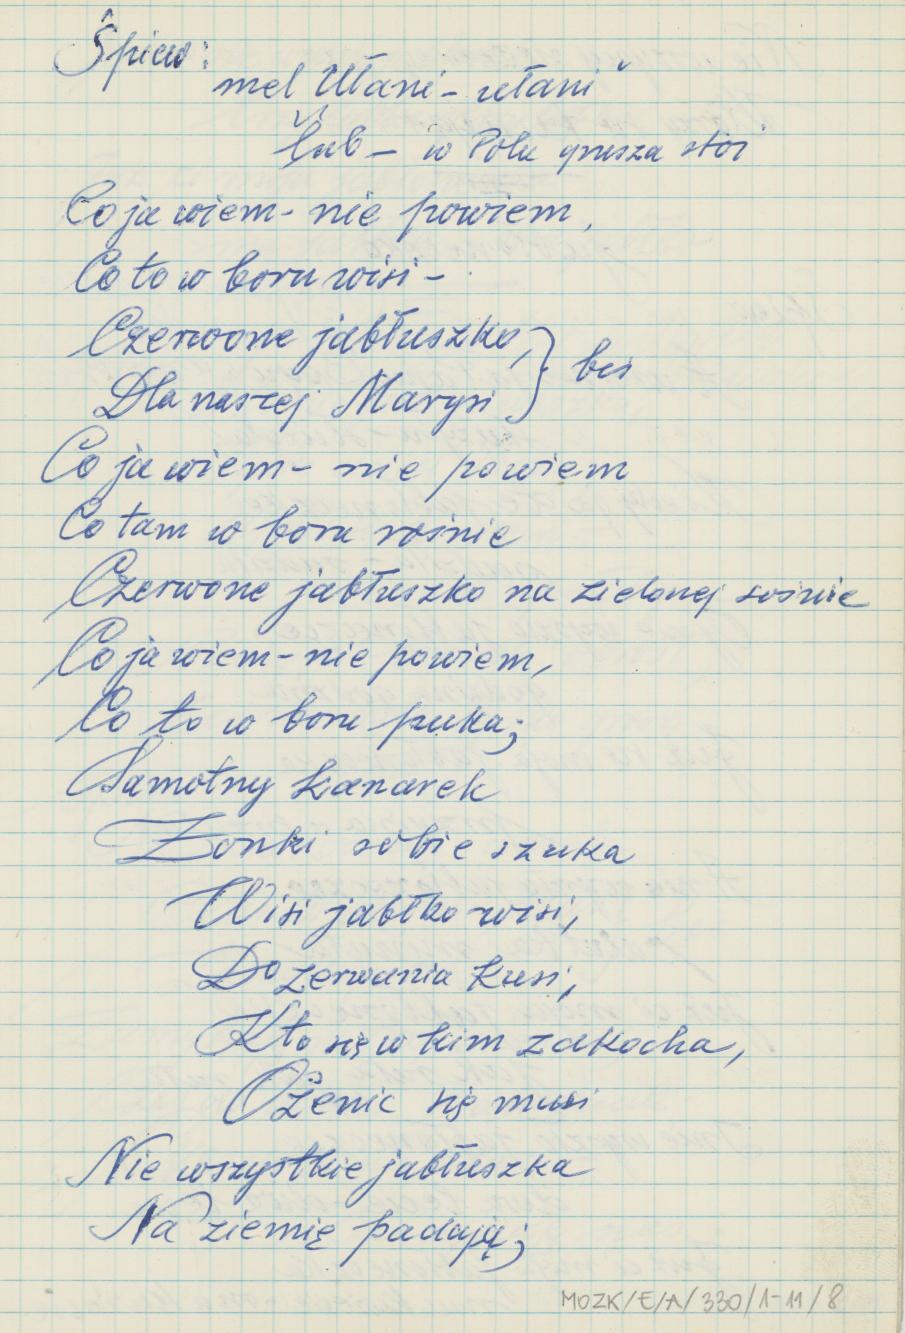 Śpiew:
mel Ułani - ułani
lub - w Polu grusza stoi
Co ja wiem - nie powiem,
Co to w boru wisi -
Czerwone jabłuszko,
Dla naszej Marysi } bis
Co ja wiem - nie powiem
Co tam w boru rośnie
Czerwone jabłuszko na zielonej sośnie
Co ja wiem - nie powiem,
Co to w boru puka;
Samotny kanarek
Żonki sobie szuka
Wisi jabłko wisi,
Do zerwania kusi,
Kto się w kim zakocha,
Ożenic się musi
Nie wszystkie jabłuszka
Na ziemię padają;
MOZK/E/A/330/1-11/8